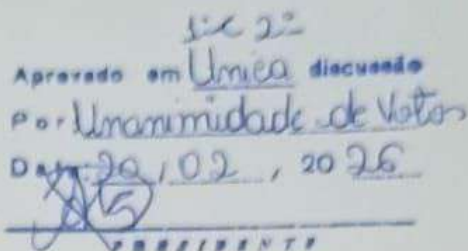 1ª e 2ª
Aprovado em Unica discussão
Por Unanimidade de Votos
Data 20 / 02 / 20 26
PRESIDENTE